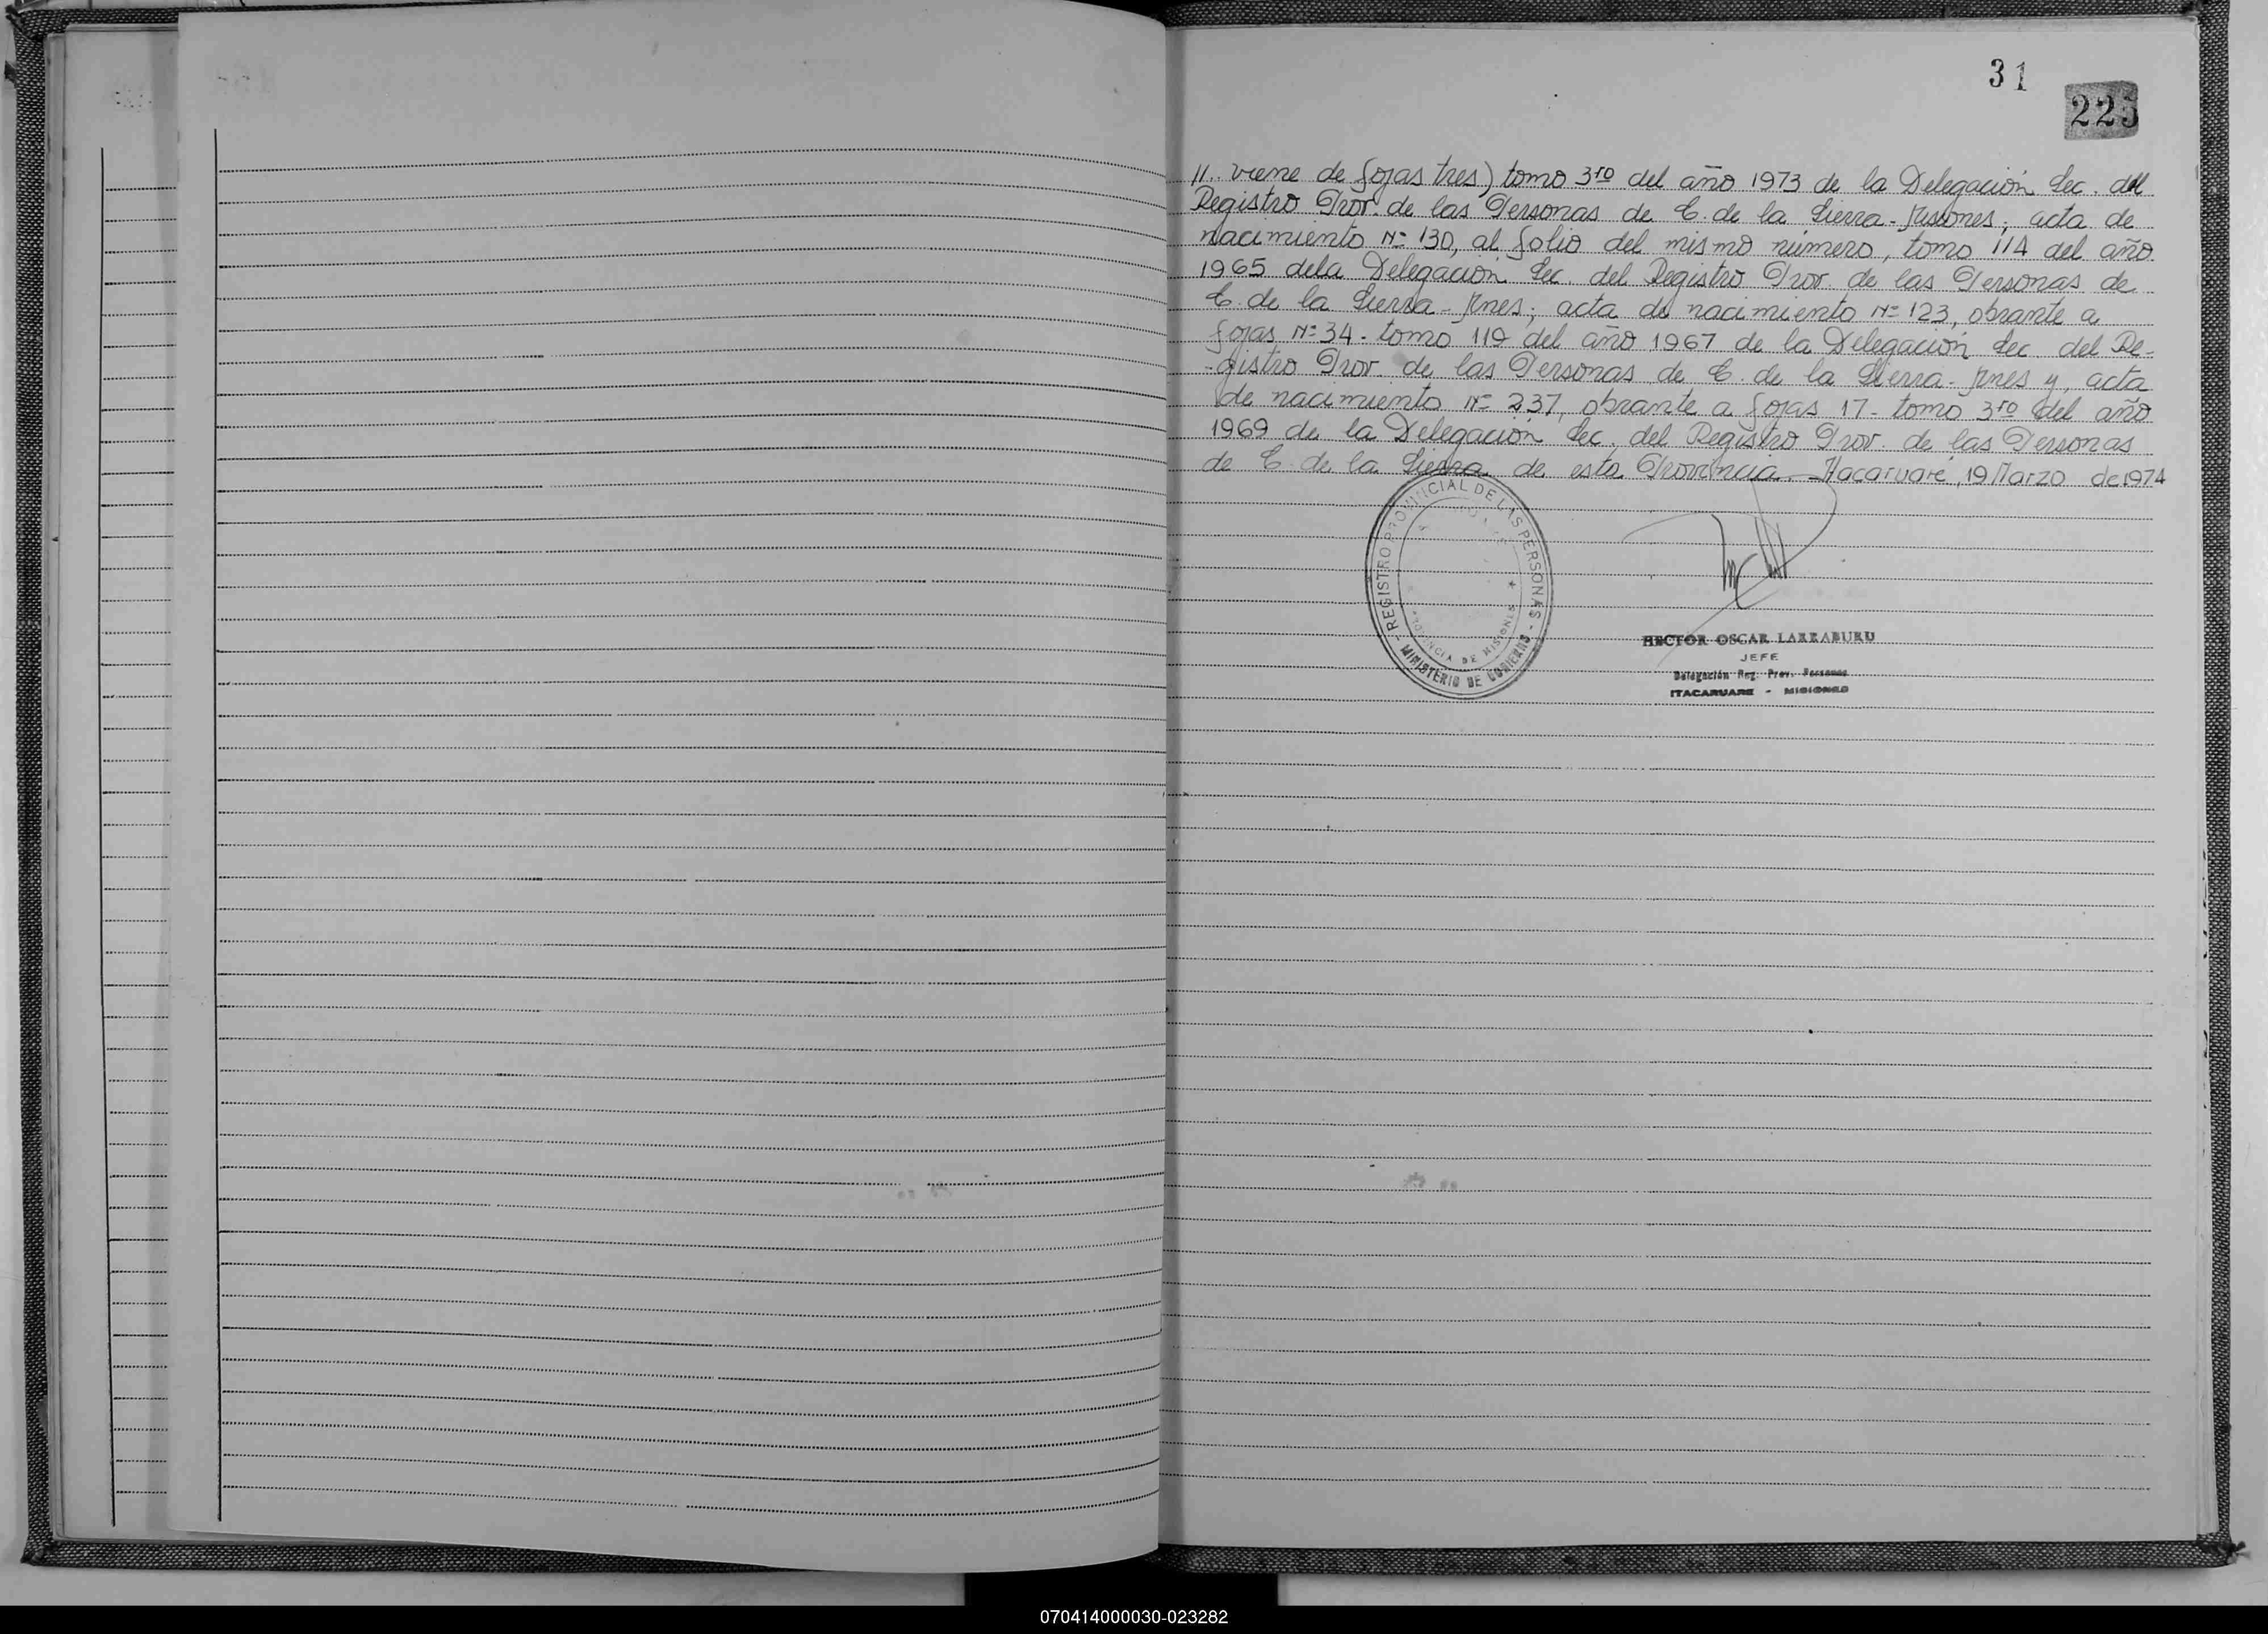 31
225
11.. viene de fojas tres) tomo 3ro del año 1973 de la Delegación Sec. del
Registro Prov. de las Personas de C. de la Sierra - Misiones; acta de
nacimiento Nº 130, al folio del mismo número, tomo 114 del año
1965 dela Delegación Sec. del Registro Prov. de las Personas de
C. de la Sierra - Mnes; acta de nacimiento Nº 123, obrante a
fojas Nº 34 - tomo 119 del año 1967 de la Delegación Sec del Re-
-gistro Prov. de las Personas de C. de la Sierra - Mnes y, acta
de nacimiento Nº 237, obrante a fojas 17 - tomo 3ro del año
1969 de la Delegación Sec. del Registro Prov. de las Personas
de C. de la Sierra de esta Provincia. - Itacaruaré, 19 Marzo de 1974
- REGISTRO PROVINCIAL DE LAS PERSONAS -
PROVINCIA DE MISIONES
MINISTERIO DE GOBIERNO
HECTOR OSCAR LARRABURU
JEFE
Delegación Reg. Prov. Personas
ITACARUARE - MISIONES
070414000030-023282